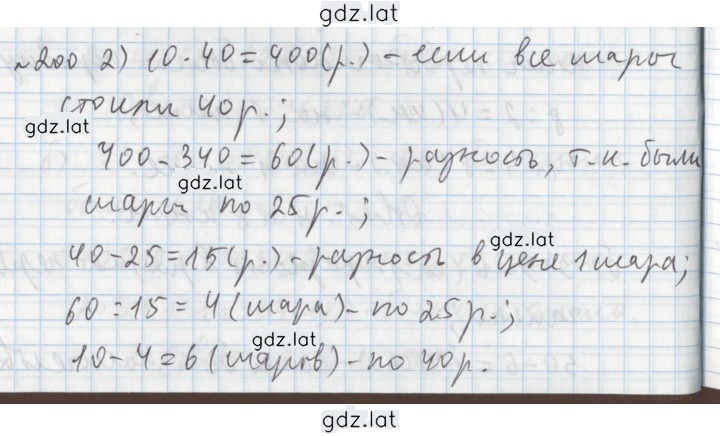 gdz.lat
№200 2) 10·40=400(р.) - если все шары
стоили 40р.;
gdz.lat
400-340=60(р.) - разность, т.к. были
gdz.lat
шары по 25р.;
40-25=15(р.) - разность в цене 1 шара;
60:15=4(шара) - по 25р.;
gdz.lat
10-4=6(шаров) - по 40р.
gdz.lat